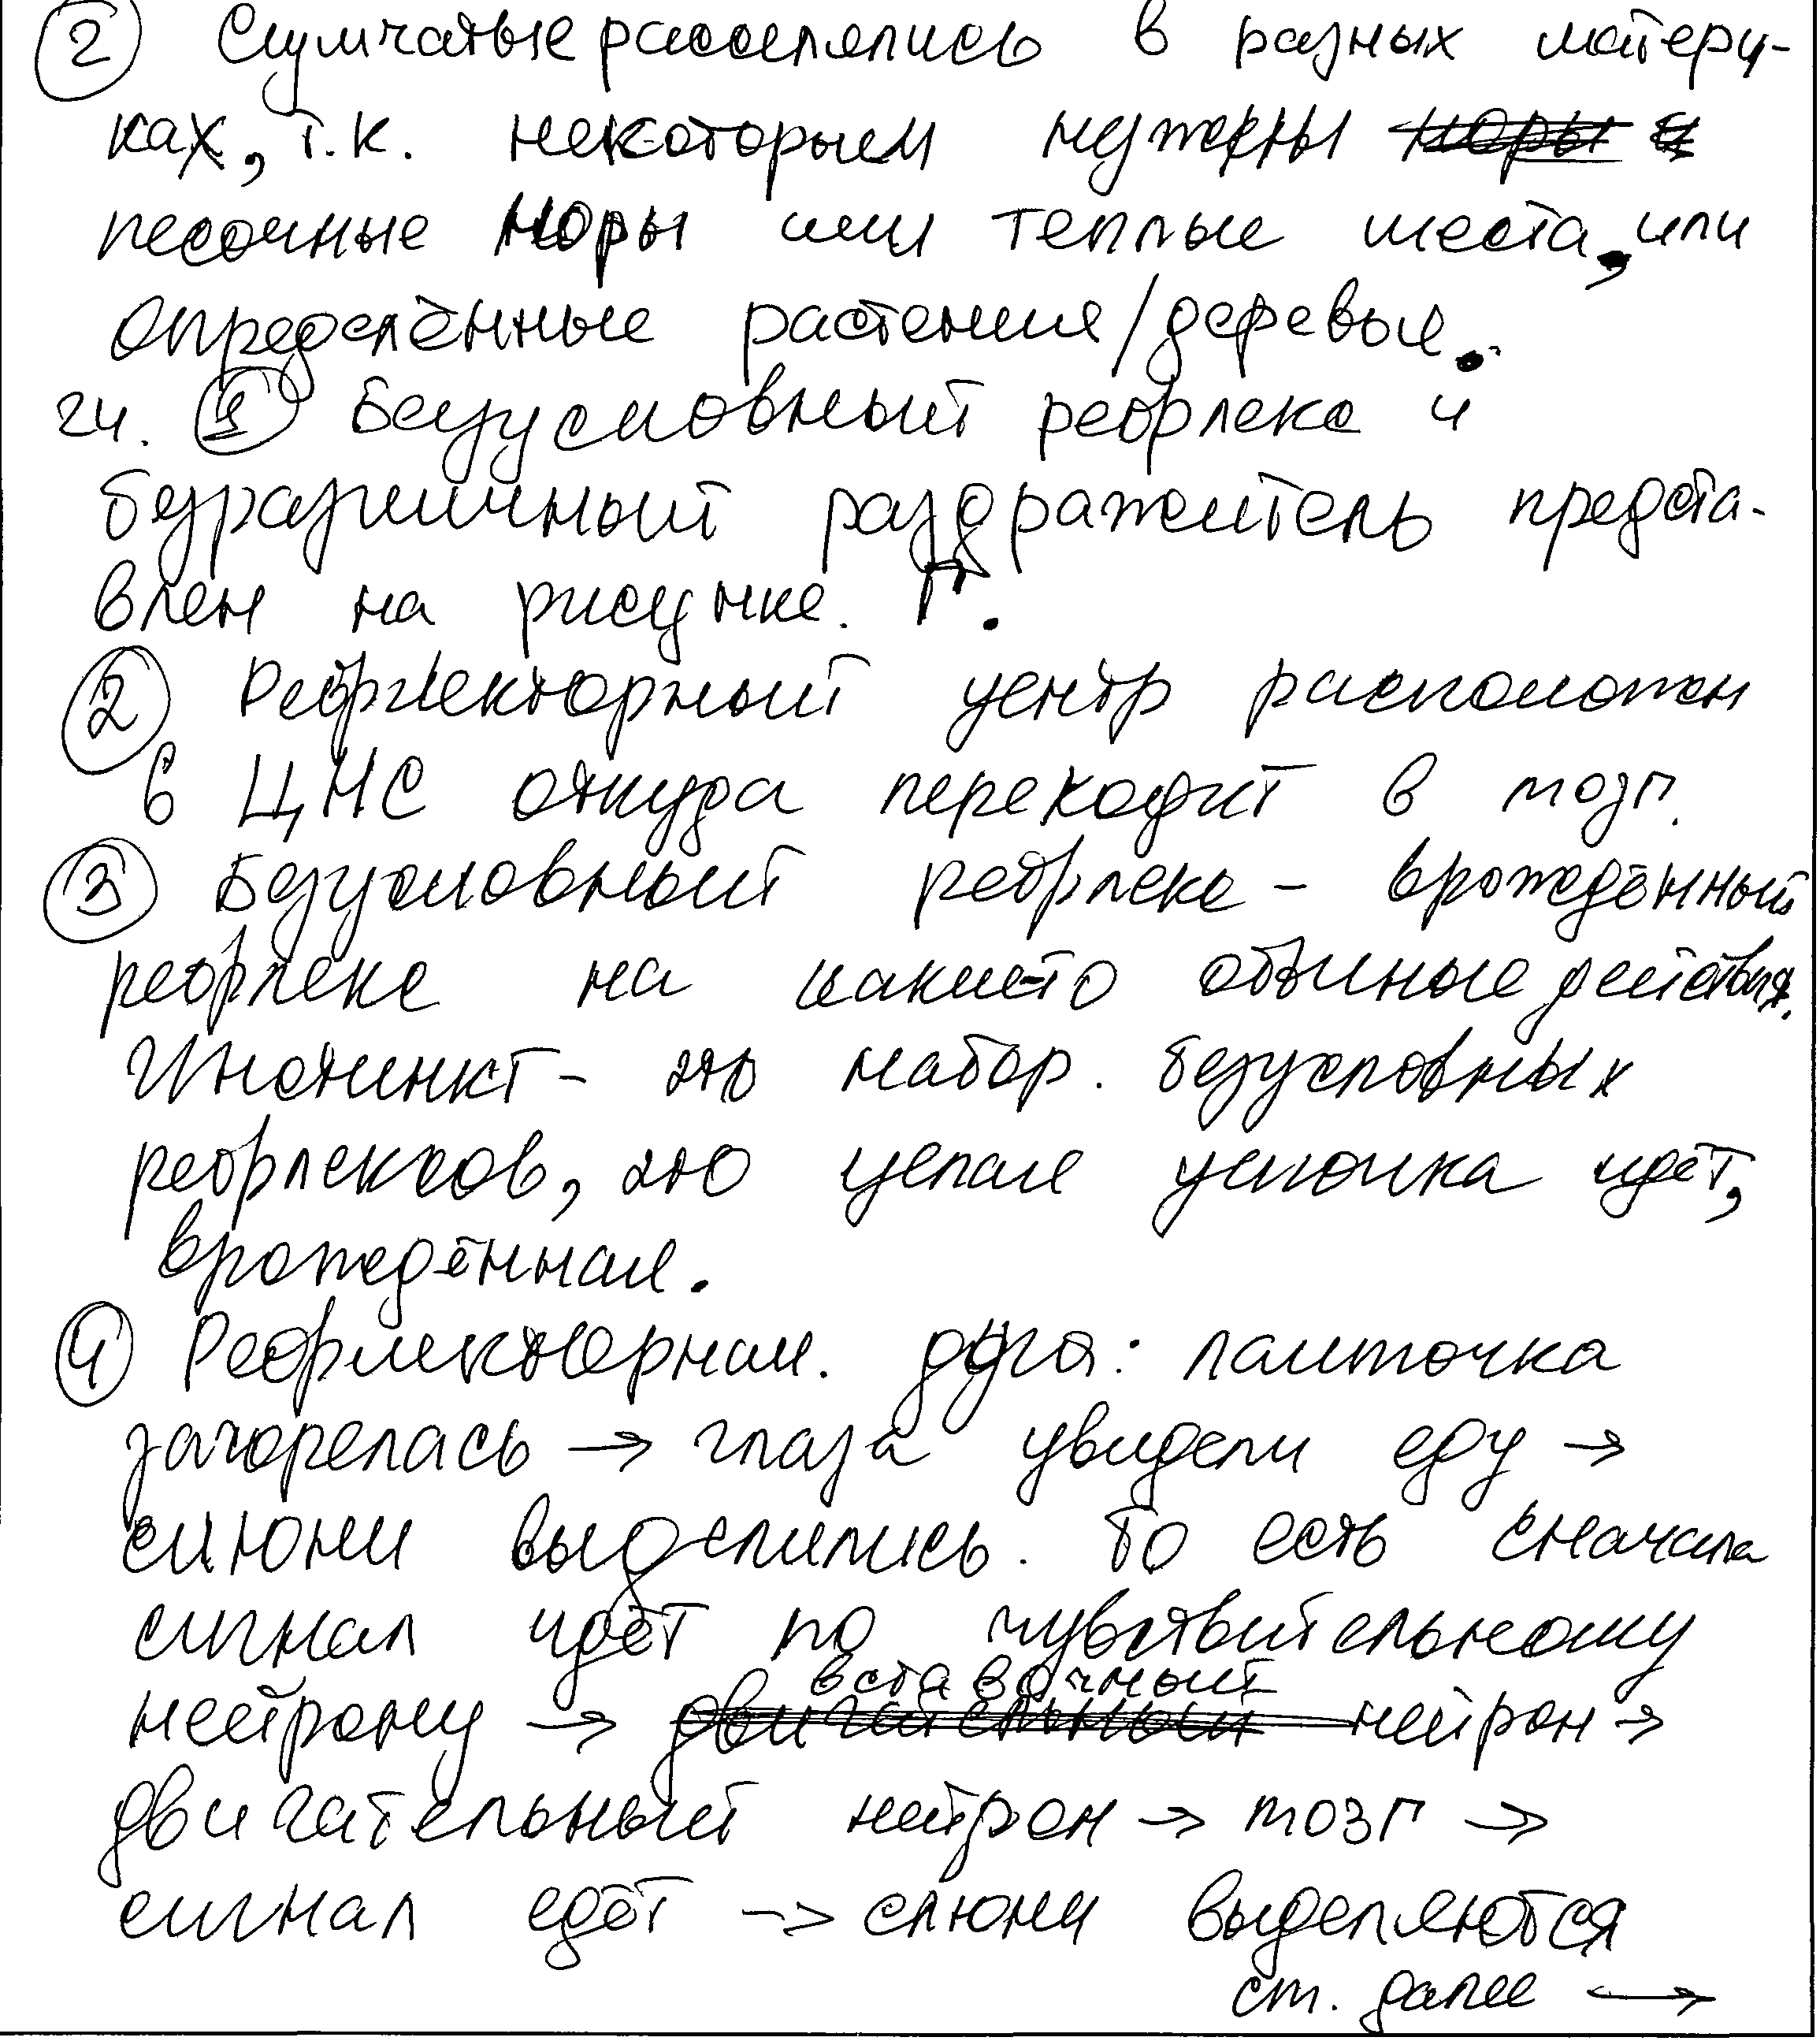 ② Сумчатые расселялись в разных матери-
ках, т.к. некоторым нужены норы и
песочные норы или теплые места, или
определённые растения/деревья.
24. ① Безусловный рефлекс и
безразличный раздражитель предста-
влен на рисунке. Г.
② Рефлекторный центр расположен
в ЦНС откуда переходит в мозг.
③ Безусловный рефлекс - врождённый
рефлекс на какие-то обычные действия.
Инстинкт - это набор. безусловных
рефлексов, это целая цепочка идёт,
врождённая.
④ Рефлекторная. дуга: лампочка
загорелась → глаза увидели еду →
слюни выделились. То есть сначала
сигнал идёт по чувствительному
вставочный
нейрону → двигательный нейрон →
двигательный нейрон → мозг →
сигнал едёт → слюни выделяются
см. далее →